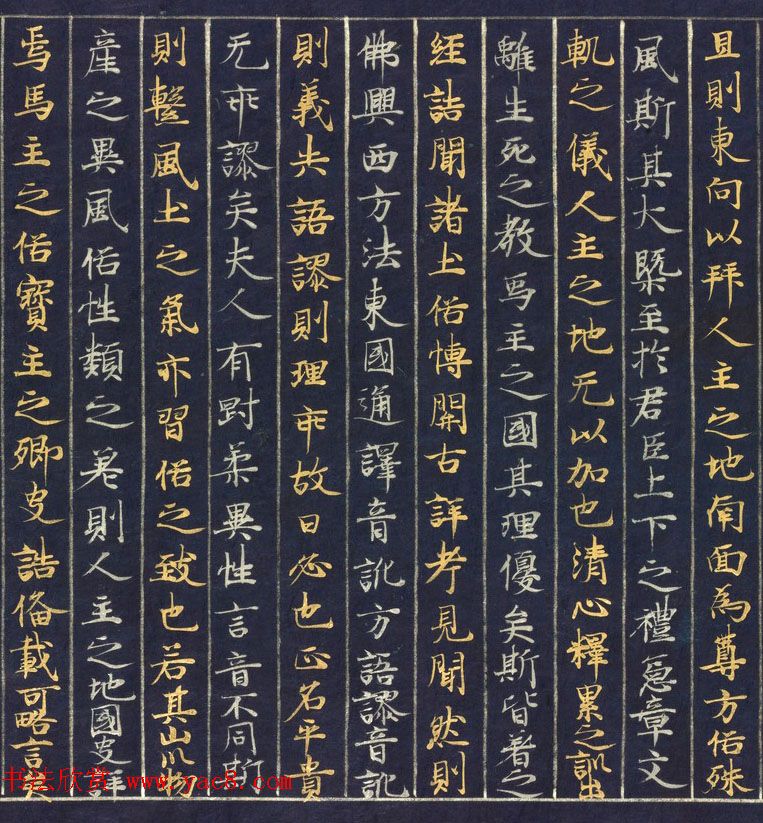 且則東向以拜人主之地南面為尊方俗殊
風斯其大槩至於君臣上下之禮憲章文
軌之儀人主之地无以加也清心釋累之訓出
離生死之教焉主之國其理優矣斯皆著之
經誥聞諸土俗博開古詳考見聞然則
佛興西方法東國通譯音訛方語謬音訛
則義失語謬則理乖故曰必也正名乎貴
无乖謬矣夫人有對柔異性言音不同斯
則繫風土之氣亦習俗之致也若其山川物
產之異風俗性類之差則人主之地國史詳
焉馬主之俗寶主之鄉史誥俻載可略言矣
书法欣赏 www.yac8.com